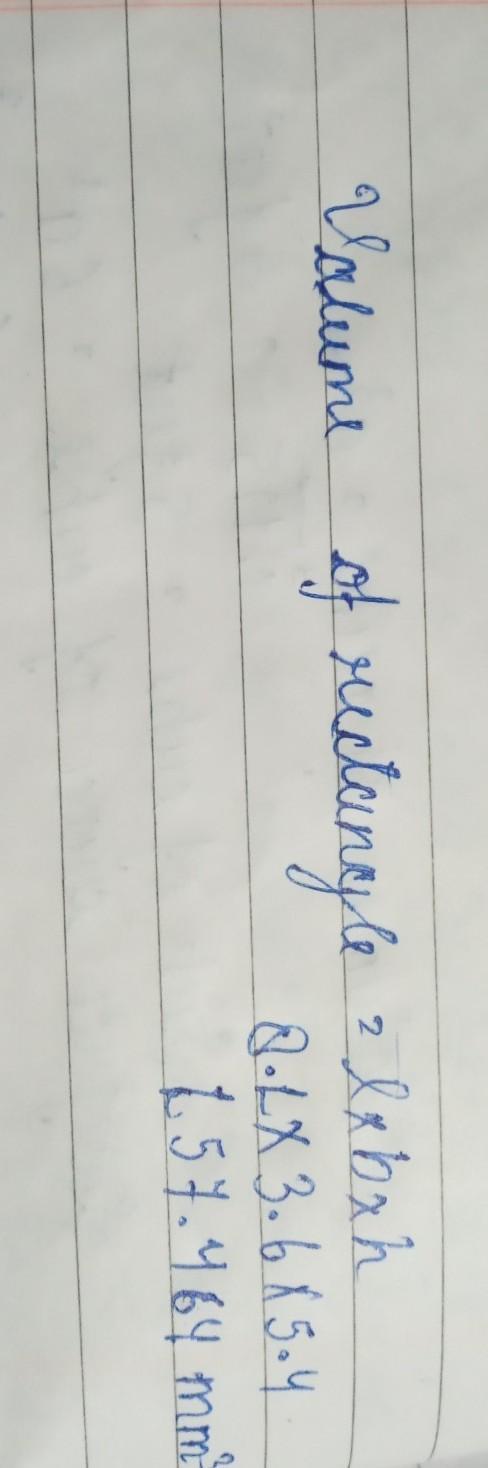 Volume of rectangle = l x b x h
8.1 x 3.6 x 5.4
157.464 mm³